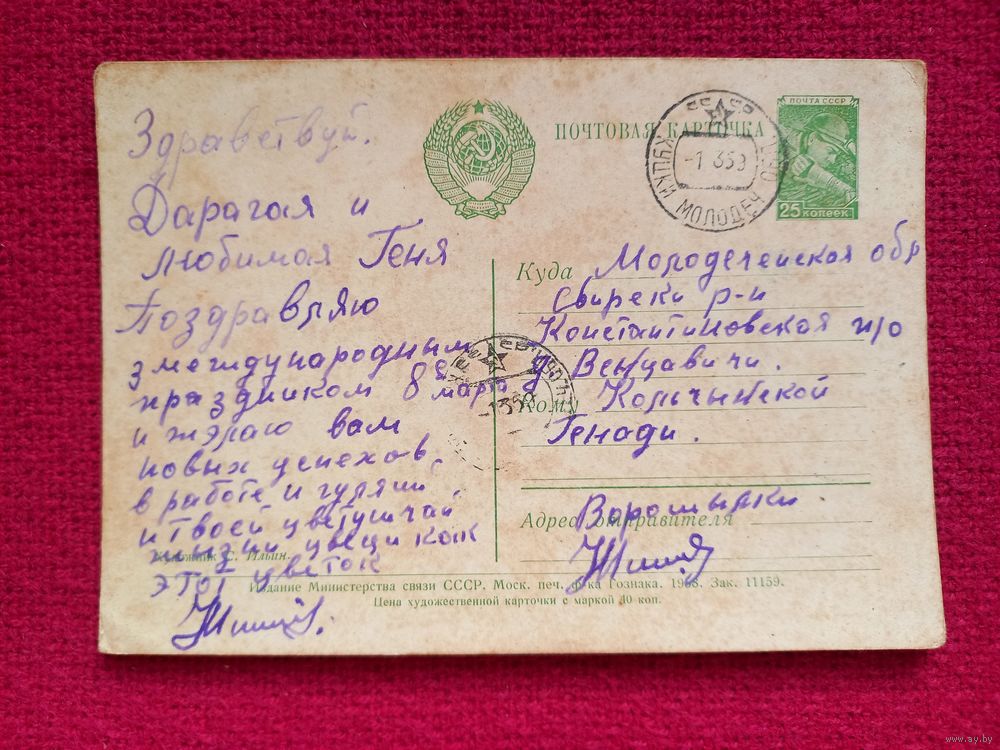 Здравствуй.
Дарагая и
любимая Геня
Поздравляю
з международным
праздником 8 марта
и жэлаю вам
новых успехов,
в работе и гуляни
и твоей цветушчай
жызни цвеци как
этот цветок
ПОЧТОВАЯ КАРТОЧКА
ПОЧТА СССР
25 КОПЕЕК
МОЛОДЕЧ
Куда Молодечейская обл
Свирски р-н
Константиновская п/о
д Венцавичи.
Кому Кольчынской
Генади.
Адрес отправителя
Художник С. Ильин.
Издание Министерства связи СССР. Моск. печ. ф-ка Гознака. 1958. Зак. 11159.
Цена художественной карточки с маркой 40 коп.
www.ay.by